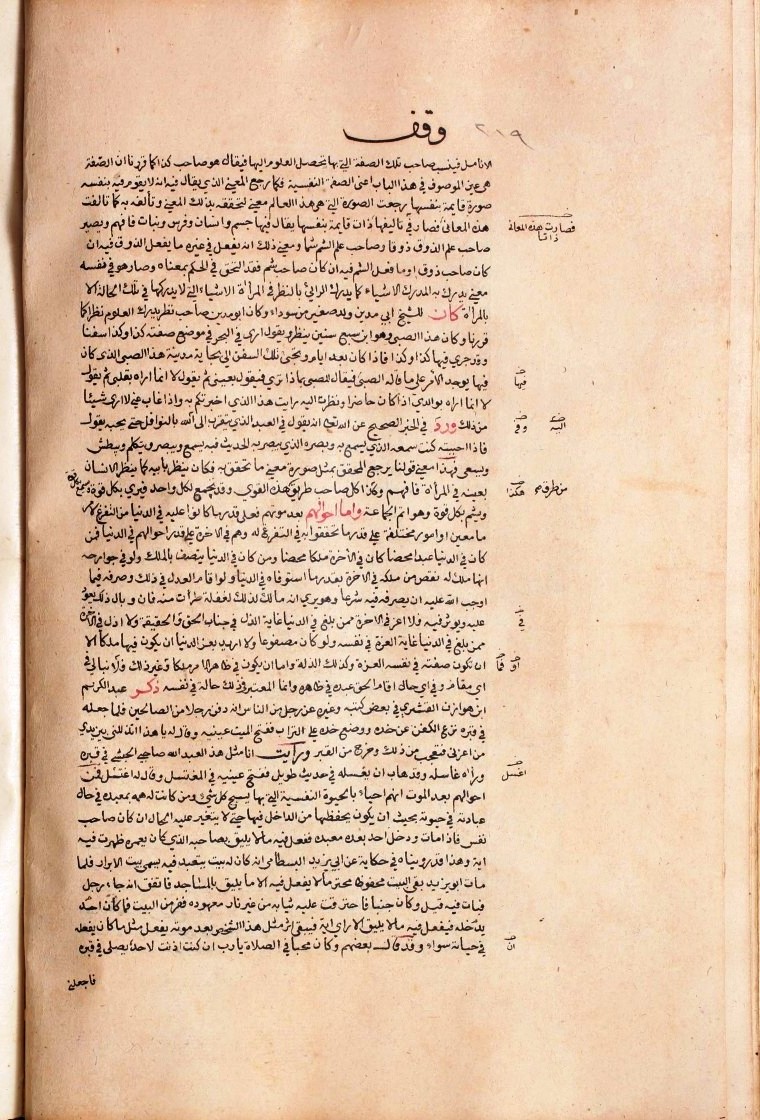 وقف
٢١٩
الانامل فينسب صاحب تلك الصفة التي بها تحصل العلوم اليها فيقال هو صاحب كذا كما قررنا ان الصفة
هي عين الموصوف في هذا الباب اعني الصفة النفسية فكما رجع المعنى الذي يقال فيه انه لا يقوم فيه بنفسه
صورة قايمة بنفسها رجعت الصورة التي هي هذا العالم معنى لتحققه بذلك المعنى وتألفه به كما تألفت
هذه المعاني فصار في تاليفها ذات قايمة بنفسها يقال فيها جسم وانسان وفرس ونبات فافهم ويصير
فصارت هذه المعاني
ذاتا
صاحب علم الذوق ذوقا وصاحب علم الشم شما ومعنى ذلك انه يفعل في غيره ما يفعل الذوق فيه ان
كان صاحب ذوق او ما فعل الشم فيه ان كان صاحب شم فقد التحق في الحكم بمعناه وصار هو في نفسه
معنى يدرك به المدرك الاشياء كما يدرك الرائي بالنظر في المرأة الاشياء التي لا يدركها في تلك الحالة الا
بالمرأة كان للشيخ ابي مدين ولد صغير من سوداء وكان ابو مدين صاحب نظر يدرك العلوم نظرا كما
قررنا وكان هذا الصبي وهو ابن سبع سنين ينظر ويقول ارى في البحر في موضع صفته كذا وكذا سفنا
وقد جرى فيها كذا وكذا فاذا كان بعد ايام وتجئ تلك السفن الى بجاية مدينة هذا الصبي الذي كان
فيها يوجد الامر على ما قاله الصبي فيقال للصبي بماذا ترى فيقول بعيني ثم يقول لا انما اراه بقلبي ثم يقول
فيها
لا انما اراه بوالدي اذا كان حاضرا ونظرت اليه رايت هذا الذي اخبرتكم به واذا غاب عني لا ارى شيئا
من ذلك ورد في الخبر الصحيح عن الله تعالى انه يقول في العبد الذي يتقرب الى الله بالنوافل حتى يحبه يقول
وفي
اليه
فاذا احببته كنت سمعه الذي يسمع به وبصره الذي يبصر به الحديث فبه يسمع وبه يبصر ويتكلم ويبطش
ويسعى فهذا معنى قولنا يرجع المحقق بمثل صورة معنى ما تحقق به فكان ينظر بابيه كما ينظر الانسان
بعينه في المرأة فافهم وكذا كل صاحب طريق هذه القوى وقد يجمع لكل واحد فيرى بكل قوة ويسمع بكل قوة
هكذا
من طرق
ويشم بكل قوة وهو اتم الجماعة واما احوالهم بعد موتهم فعلى قدر ما كانوا عليه في الدنيا من التفرغ لامر
ما معين او امور مختلفة على قدر ما تحققوا به في التفرغ له وهم في الاخرة على قدر احوالهم في الدنيا فمن
كان في الدنيا عبدا محضا كان في الاخرة ملكا محضا ومن كان في الدنيا يتصف بالملك ولو في جوارحه
انها ملك له نقص من ملكه في الاخرة بقدر ما استوفاه في الدنيا ولو اقام العدل في ذلك وصرفه فيما
اوجب الله عليه ان يصرفه فيه شرعا وهو يرى انه مالك لذلك لغفلة طرأت منه فان وبال ذلك يعود
عليه ويؤثر فيه فلا اعز في الاخرة ممن بلغ في الدنيا غاية الذل في جناب الحق والحقيقة ولا اذل في الاخرة
في
ممن بلغ في الدنيا غاية العزة في نفسه ولو كان مصفوعا ولا اريد بعز الدنيا ان يكون فيها ملكا الا
ان تكون صفته في نفسه العزة وكذلك الذلة واما ان يكون في ظاهر الامر ملكا وغير ذلك فلا نبالي في
او
فا
اي مقام وفي اي حال اقام الحق عبده في ظاهره وانما المعتبر في ذلك حاله في نفسه ذكر عبد الكريم
ابن هوازن القشيري في بعض كتبه وغيره عن رجل من الناس انه دفن رجلا من الصالحين فلما جعله
في قبره نزع الكفن عن خده ووضع خده على التراب ففتح الميت عينيه وقال له يا هذا اتذللني بين يدي
من اعزني فتعجب من ذلك وخرج من القبر ورأيت انا مثل هذا لعبد الله صاحبي الحبشي في قبره
ورأه غاسله وقد هاب ان يغسله في حديث طويل ففتح عينيه في المغتسل وقال له اغتسل فمن
اغسل
احوالهم بعد الموت انهم احياء بالحيوة النفسية التي بها يسبح كل شئ ومن كانت له همة بمعبده في حال
عبادته في حيوته بحيث ان يكون يحفظها من الداخل فيها حتى لا يتغير عليه الحال ان كان صاحب
نفس فاذا مات ودخل احد بعده معبده ففعل فيه ما لا يليق بصاحبه الذي كان يعمره ظهرت فيه
اية وهذا قد رويناه في حكاية عن ابي يزيد البسطامي انه كان له بيت يتعبد فيه يسمى بيت الابرار فلما
مات ابو يزيد بقي البيت محفوظا محترما لا يفعل فيه الا ما يليق بالمساجد فاتفق انه جاء رجل
فبات فيه قيل وكان جنبا فاحترقت عليه ثيابه من غير نار معهوده ففر من البيت فما كان احد
يدخله فيفعل فيه ما لا يليق الا راى اية فيبقى اثر مثل هذا الشخص بعد موته يفعل مثل ما كان يفعله
في حياته سواء وقد قال بعضهم وكان محبا في الصلاة يا رب ان كنت اذنت لاحد يصلي في قبره
ان
فاجعلني